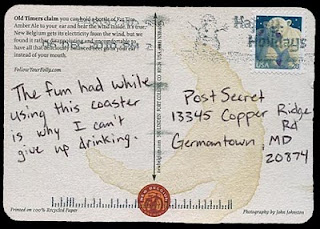 Old Timers claim you can hold a bottle of Fat Tire
Amber Ale to your ear and hear the wind inside. It's true.
New Belgium gets its electricity from the wind, but we
found it rather
have all that
instead of your mouth.
FollowYourFolly.com
The fun had while
using this coaster
is why I can't
give up drinking.
Holidays
Post Secret
13345 Copper Ridge
Rd
Germantown, MD
20874
Printed on 100% Recycled Paper
Photography by John Johnston